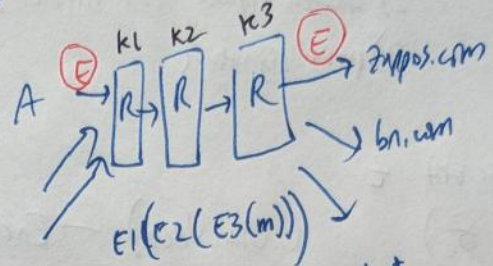 K1 K2 K3
E E
A R R R zappos.com
bn.com
E1(E2(E3(m)))